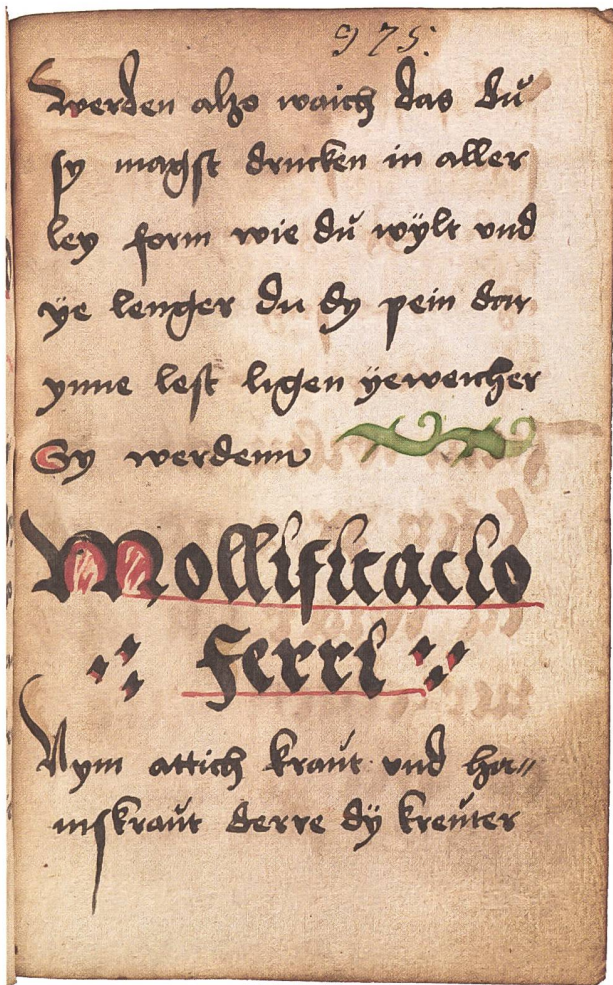 975.
werden alzo waich das dŭ
sy magst drucken in aller
ley form wie dŭ wÿlt vnd
ÿe lenger du dy pein dar
ynne lest ligen ÿeweicher
Sy werdenn
Mollificacio
ferri
Nym attich kraŭt vnd ha〃
mskraŭt derre dÿ kreŭter